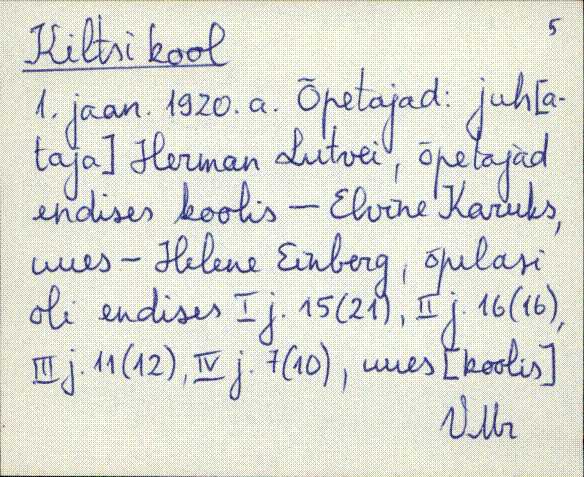 Kiltsi kool
5
1. jaan. 1920. a. Õpetajad: juh[a-
taja] Herman Lutvei, õpetajad
endises koolis – Elvine Karuks,
uues – Helene Einberg, õpilasi
oli endises I j. 15(21), II j. 16(16),
III j. 11(12), IV j. 7(10), uues [koolis]